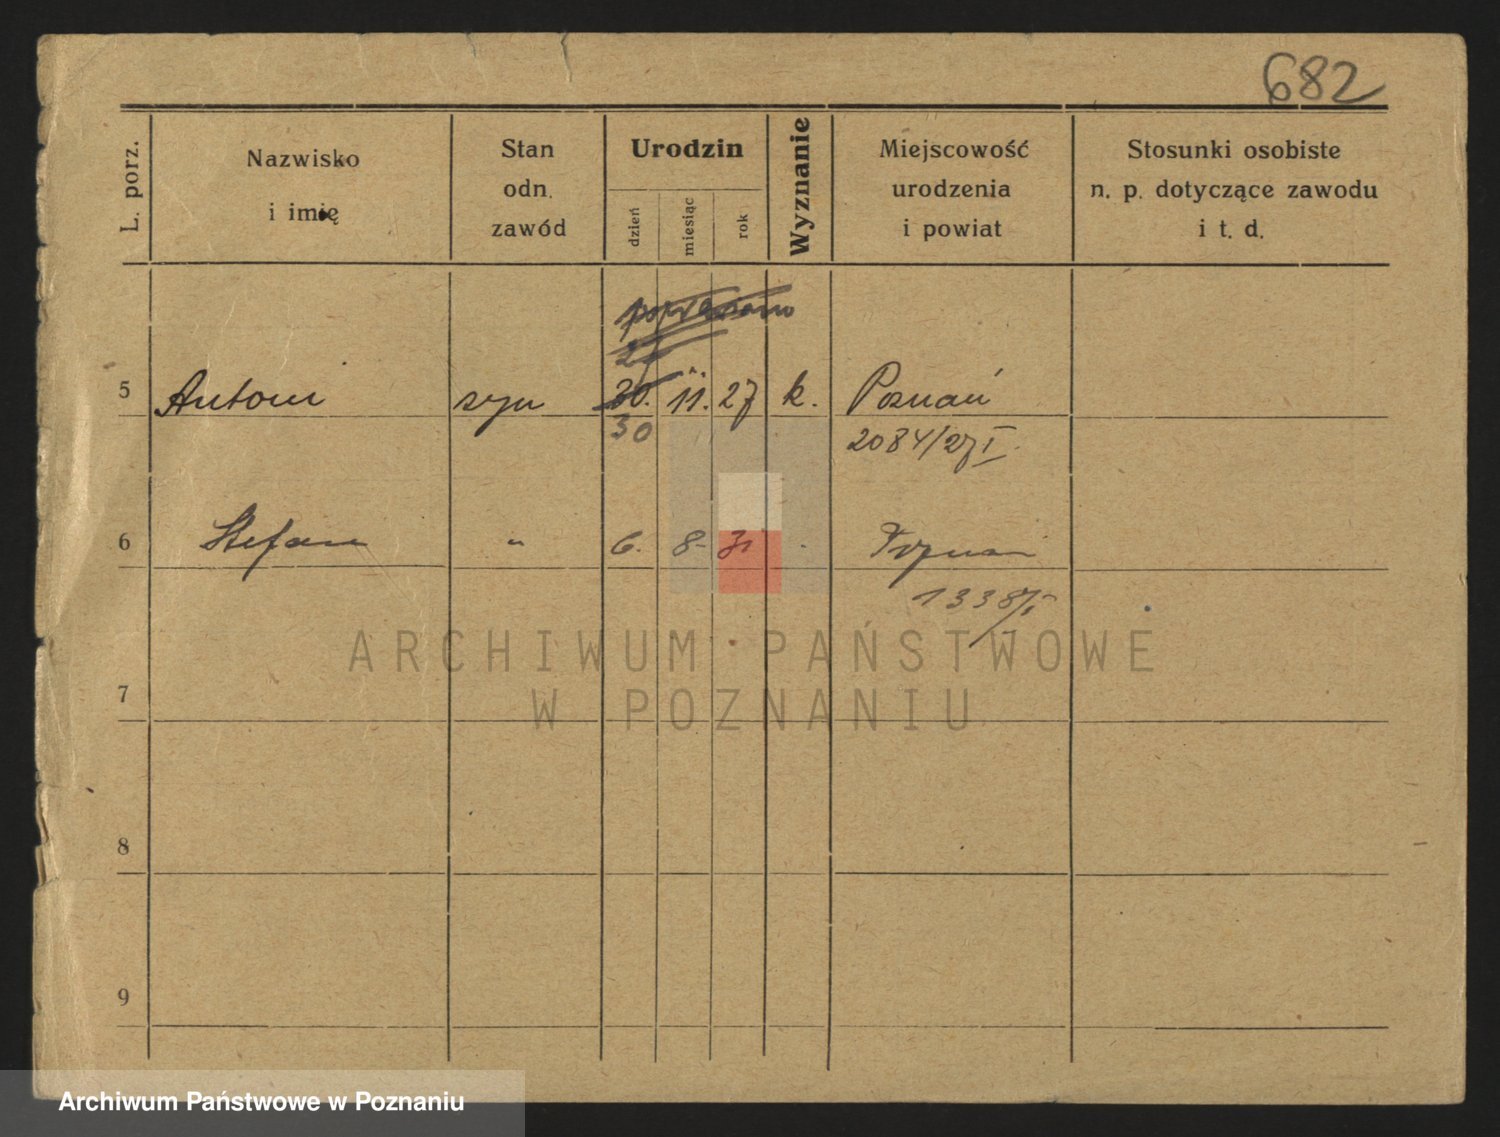 682
L. porz.
Nazwisko
i imię
Stan
odn.
zawód
Urodzin
dzień
miesiąc
rok
Wyznanie
Miejscowość
urodzenia
i powiat
Stosunki osobiste
n. p. dotyczące zawodu
i t. d.
poprawiono
27
5 Antoni syn 30. 11. 27 k. Poznań
30
2084/27 I
6 Stefan " 6. 8. 31 Poznań
1338/I
7
8
9
ARCHIWUM PAŃSTWOWE
W POZNANIU
Archiwum Państwowe w Poznaniu